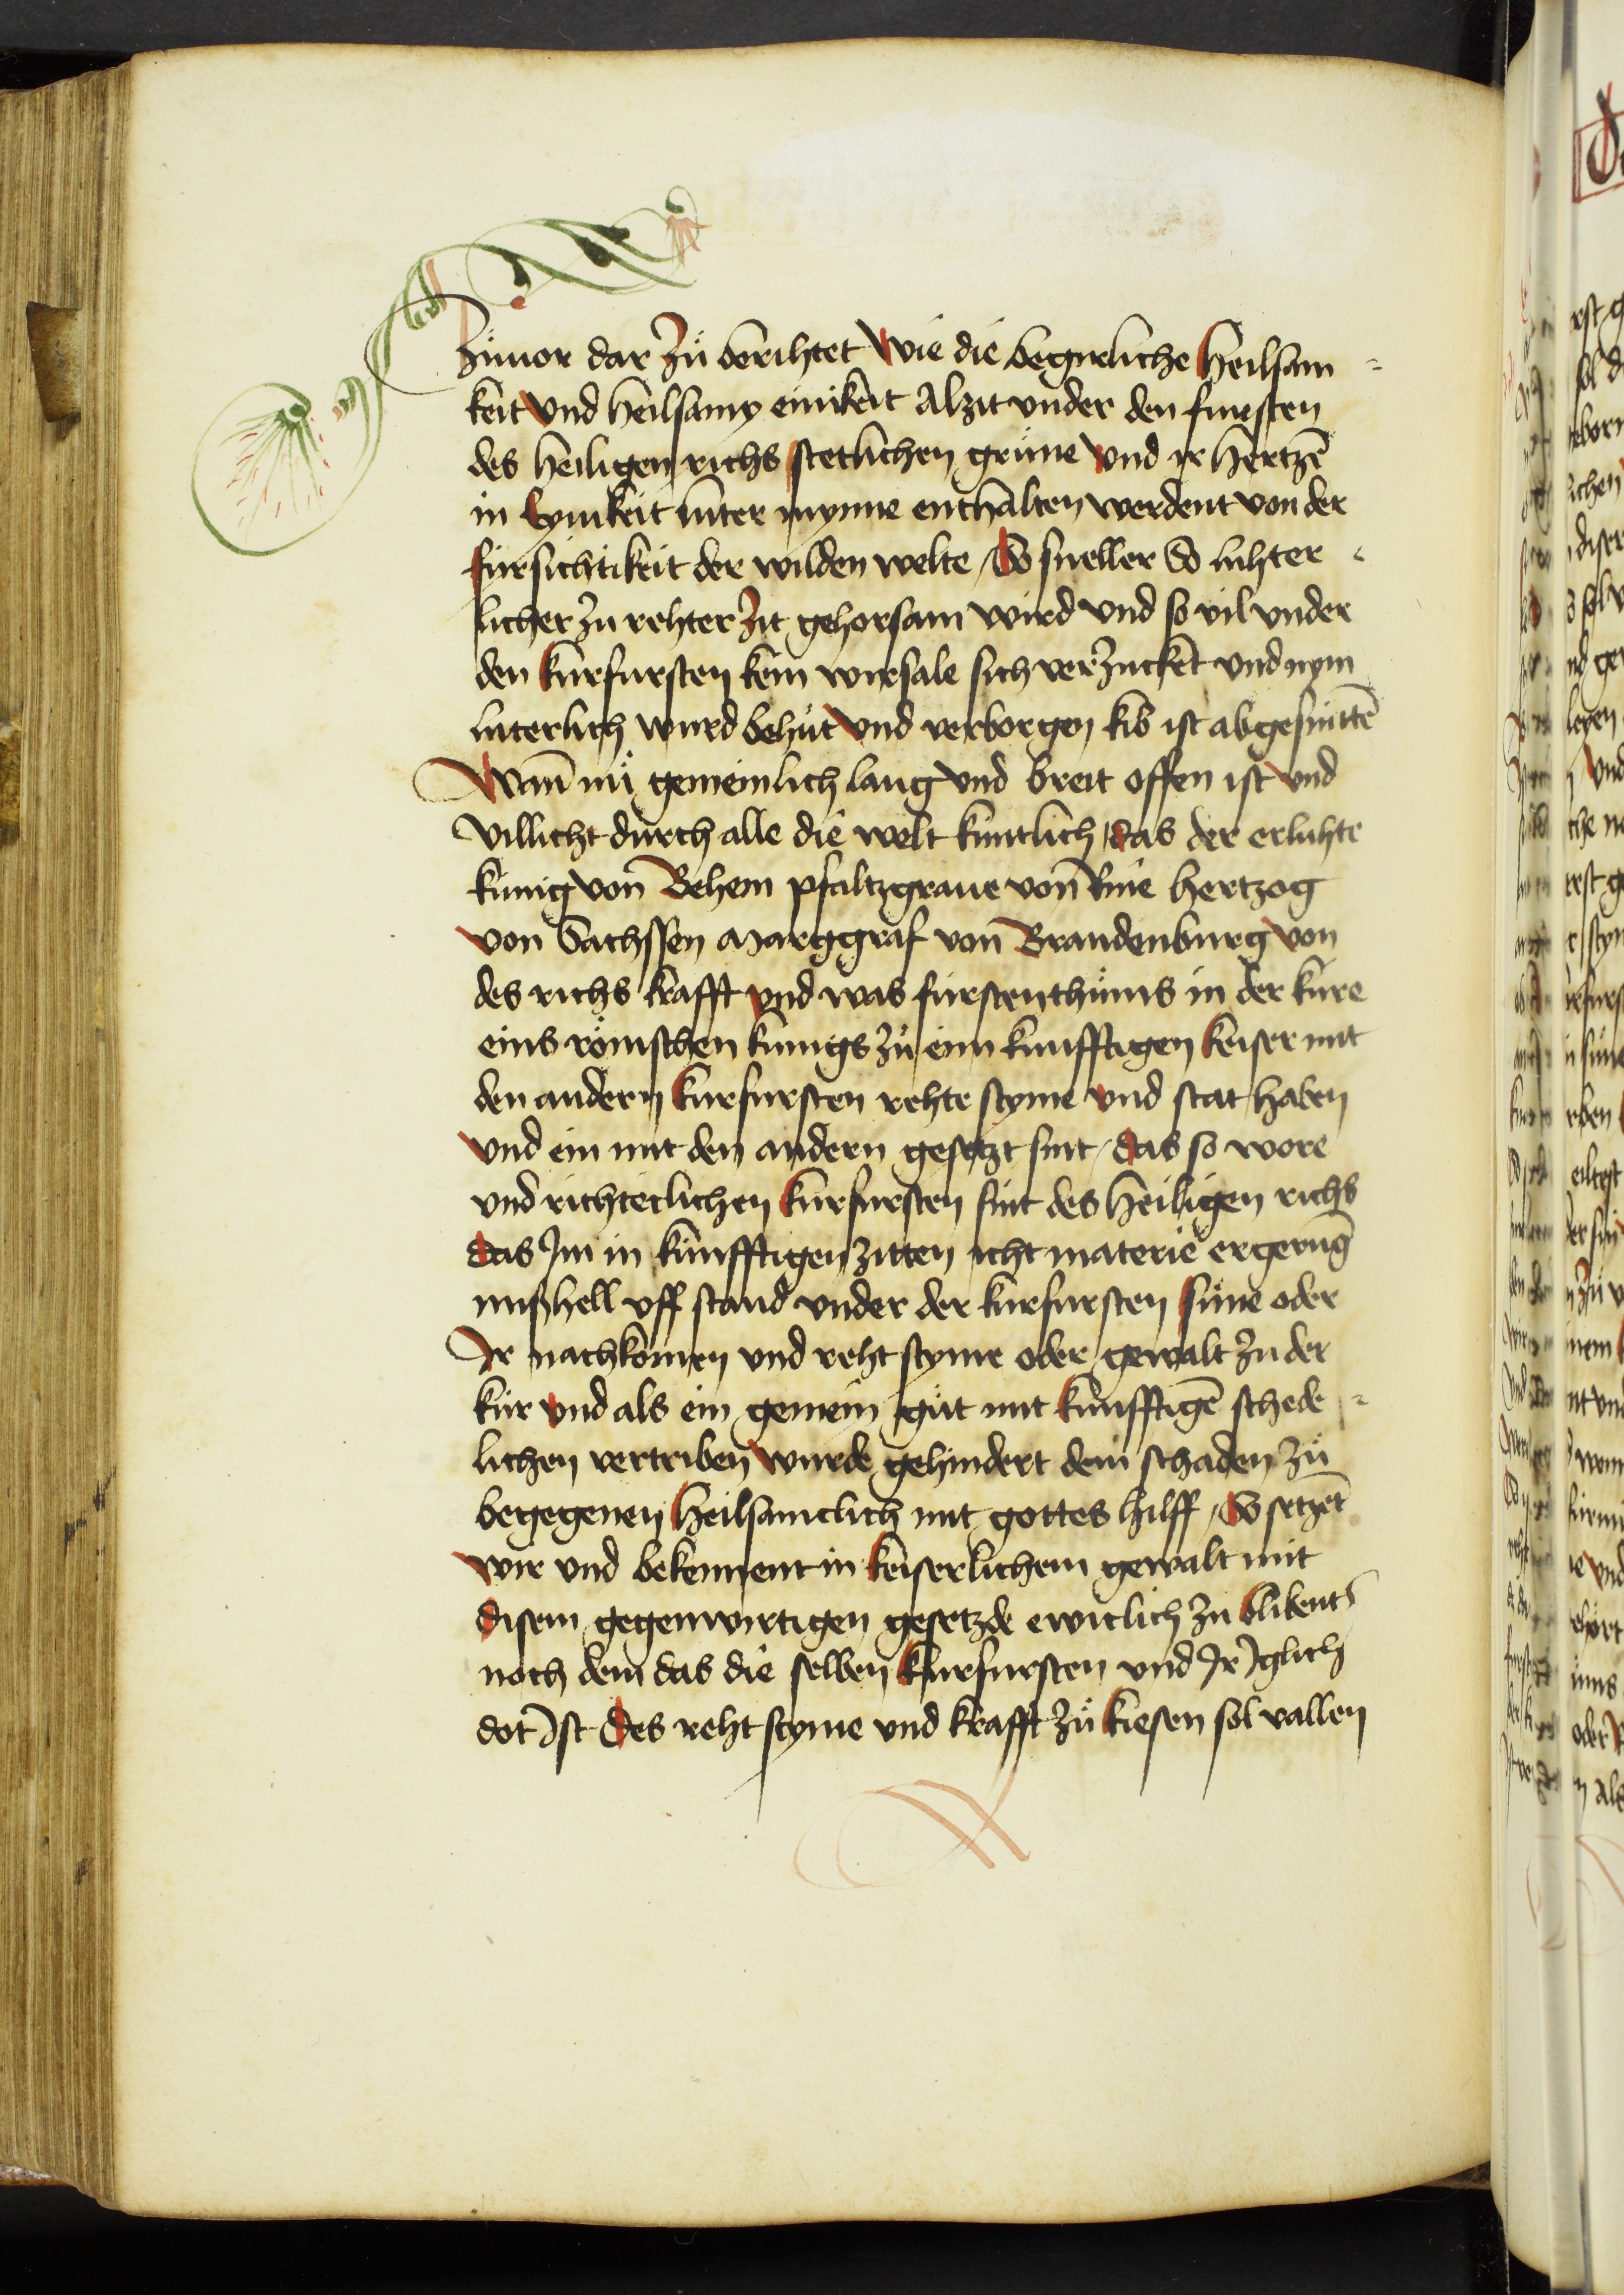 Zůuor dar Zů berihtet Wie die begnreliche Heilsam=
keit Vnd heilsamy einikeit Alzit vnder den fursten
des heiligen richs stetlichen grüne Vnd ir hertzē
in Eynikeit luter mynne enthalten werdent von der
fürsichtikeit der wilden welte / So sneller So lihter-
licher zu rehter Zit gehorsam Wird vnd so vil vnder
den kurfursten kein wirsale sich verZucket vnd nym
luterlich wurd behüt Vnd verborgen kib ist abgesnittē
Wann nü gemeinlich lang Vnd breit offen ist Vnd
villicht durch alle die welt kuntlich / das der erluhte
kunig von Behem pfaltzgraue von Rine hertzog
von Sachssen Marggraf von Brandenburg von
des richs krafft Vnd was fürstenthůms in der kure
eins römischen kunigs zů eim kunfftigen keiser mit
den andern kurfursten rehte styme Vnd stat haben
Vnd ein mit den andern gesetzt sint / das so wore
vnd richterlichen kurfursten sint des heiligen richs
das Im in kunfftigen zitten icht materie ergerung
mißhell vff stand vnder der kurfursten süne oder
Ir nachkomen vnd reht styme oder gewalt Zu der
kur Vnd als ein gemein gůt mit kunfftigē schede=
lichen vertriben Wurde gehindert dem schaden zů
begegenen Heilsamclich mit gottes hilff / So setzet
Wir vnd bekennent in keiserlichem gewalt mit
disem gegenwirtigen gesetzde ewiclich zu blibent
noch dem das die selben kurfursten vnd Ir Iglich
dot Ist Des reht styme vnd krafft Zů kiesen sol vallen